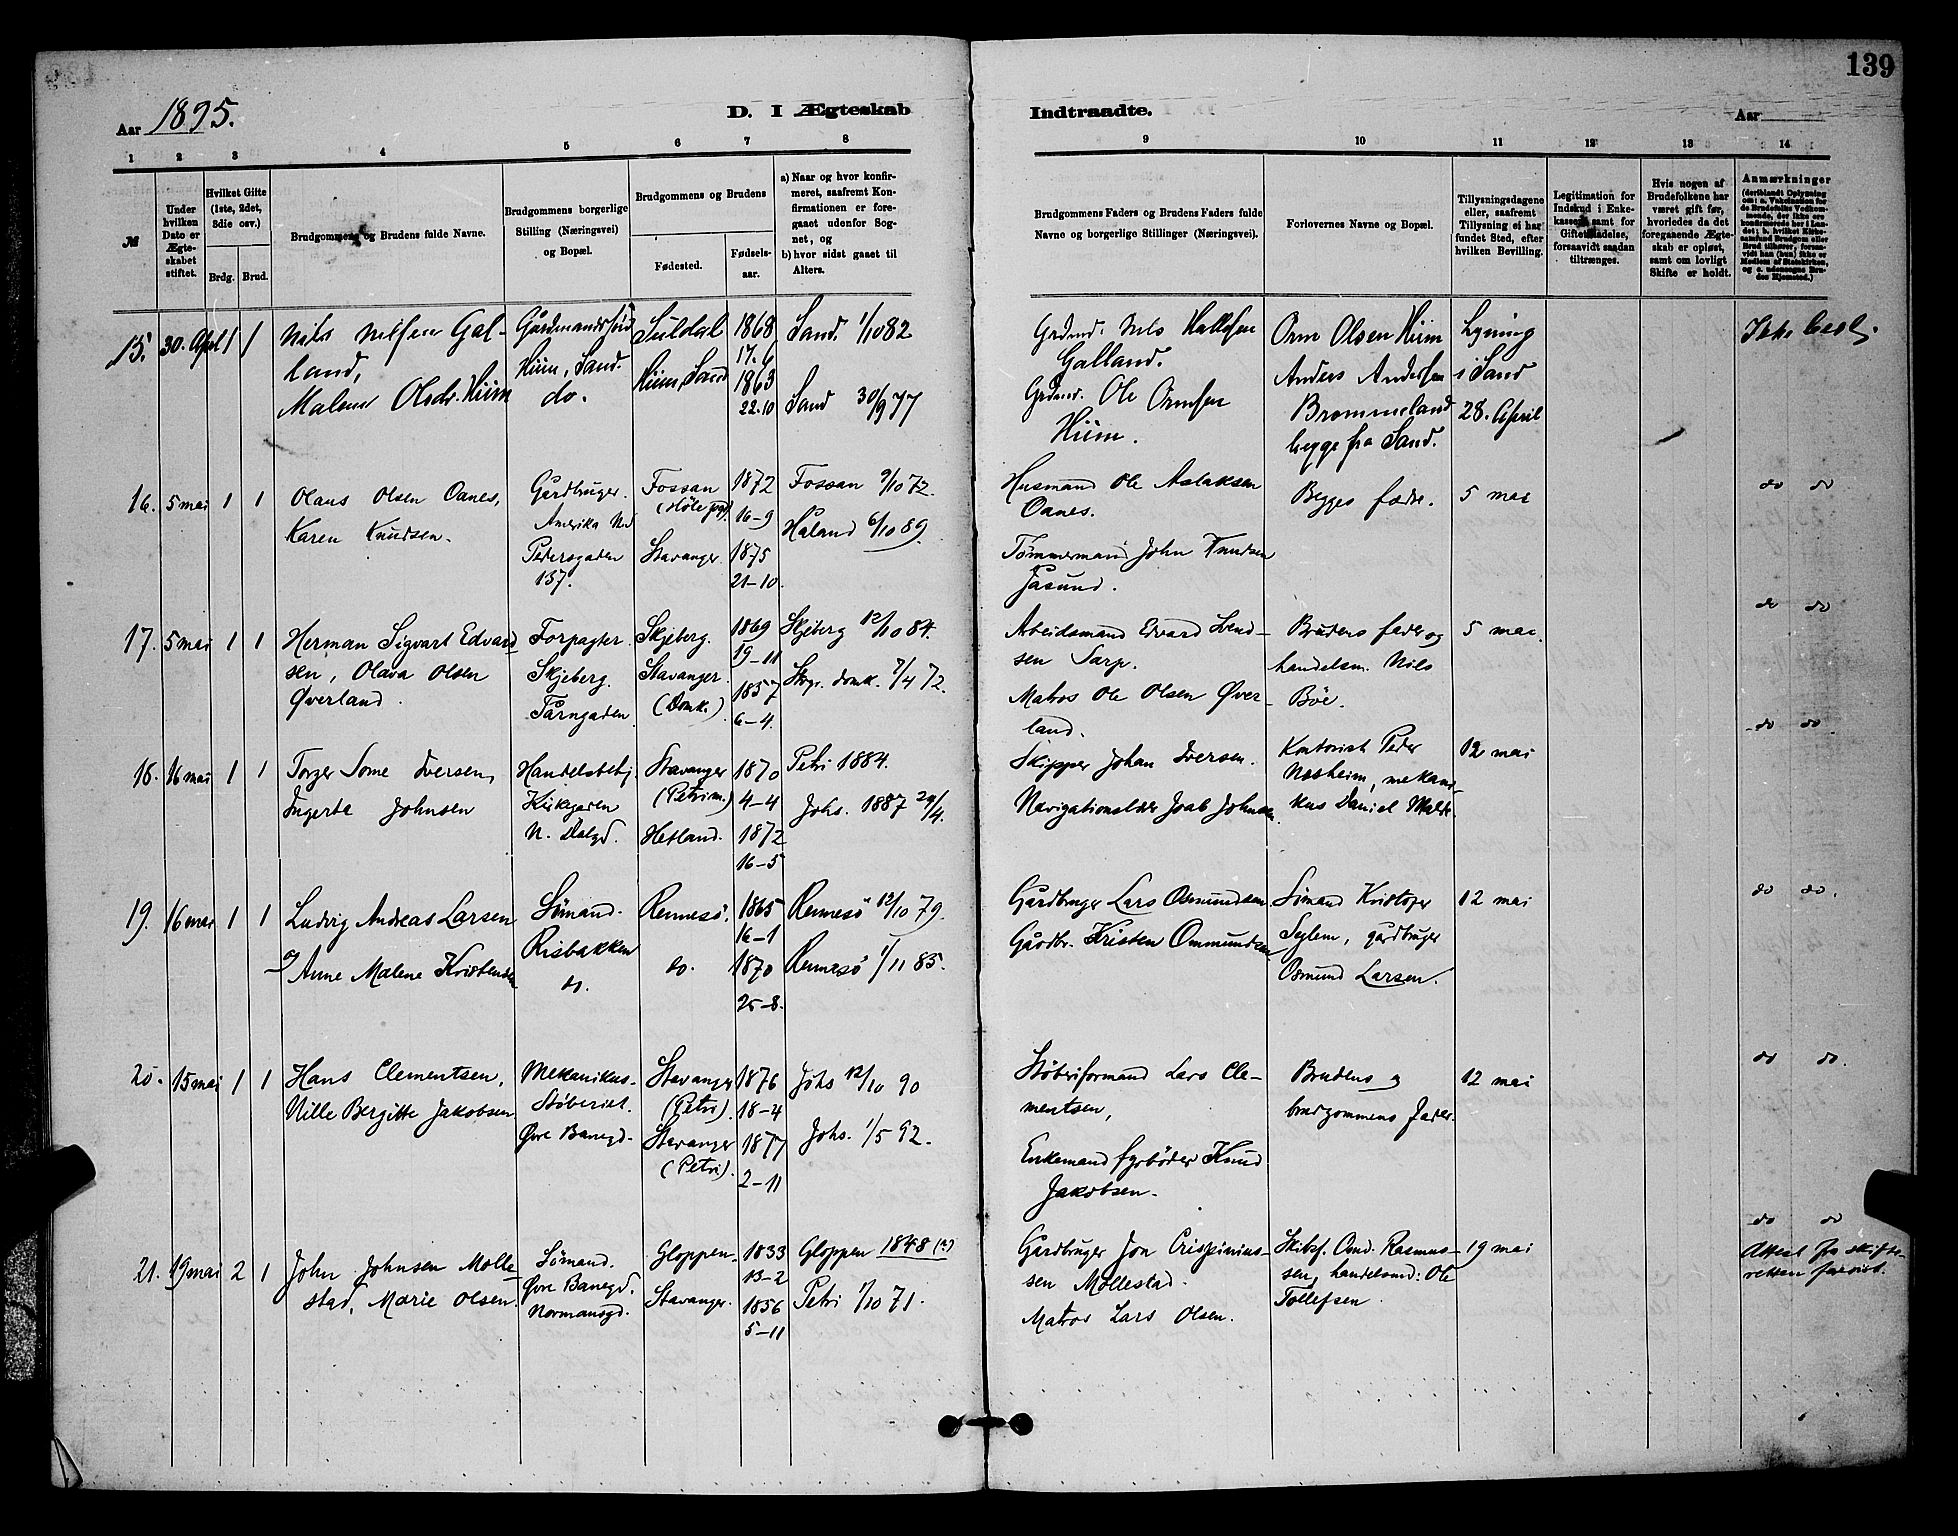 139
Aar 1895.
D. I Ægteskab
Indtraadte.
Aar
1 2 3 4 5 6 7 8 9 10 11 12 13 14
№
Under hvilken Dato er Ægteskabet stiftet.
Hvilket Gifte (1ste, 2det, 3die osv.)
Brdg. Brud.
Brudgommens og Brudens fulde Navne.
Brudgommens borgerlige Stilling (Næringsvei) og Bopæl.
Brudgommens og Brudens
Fødested.
Fødselsaar.
a) Naar og hvor konfirmeret, saafremt Konfirmationen er foregaaet udenfor Sognet, og
b) hvor sidst gaaet til Alters.
Brudgommens Faders og Brudens Faders fulde Navne og borgerlige Stillinger (Næringsvei).
Forlovernes Navne og Bopæl.
Tillysningsdagene eller, saafremt Tillysning ei har fundet Sted, efter hvilken Bevilling.
Legitimation for Indskud i Enkekassen samt for Giftetilladelse, forsaavidt saadan tiltrænges.
Hvis nogen af Brudefolkene har været gift før, hvorledes da det foregaaende Ægteskab er opløst, samt om lovligt Skifte er holdt.
Anmærkninger
15. 30. April 1 1
Nils Nilsen Galland,
Malene Olsdr. Hiim
Hiim, Sand.
do.
Suldal
Hiim, Sand
1868
17.6
1863
22.10
Sand. 1/10 82
Sand 30/9 77
Grdmd. Nils Hallesen
Galland.
Grdmd. Ole Ormsen
Hiim.
Orm Olsen Hiim
Anders Andersen
Brommeland
begge fra Sand.
Lysning
i Sand
28. April
Ikke besl.
16. 5 mai 1 1
Olaus Olsen Oanes,
Karen Knudsen.
Gårdbruger.
Amerika
Pedersgaden
137.
Fossan
(Höle pgd)
Stavanger.
1872
16-9
1875
21-10.
Fossan 9/10 72.
Håland 6/10 89.
Husmand Ole Aslaksen
Oanes.
Tömmermand John Knudsen
Jåsund.
Begges fædre.
5 mai
do do
17. 5 mai 1 1
Herman Sigvart Edvardsen, Olava Olsen
Øverland.
Forpagter.
Skjeberg.
Tårngaden
Skjeberg.
Stavanger.
(Domk.)
1869
19-11
1857
6-4.
Skjeberg 12/10 84.
Stvgr. domk. 7/4 72.
Arbeidsmand Edvard Svendsen Sarp.
Matros Ole Olsen Øverland.
Brudens fader og
handelsm. Nils
Böe.
5 mai.
do do
18. 16 mai 1 1
Torger Some Iversen,
Ingerte Johnsen
Handelsbetj.
Kirkegaden
N. Dalgd.
Stavanger
(Petri m.)
Hetland.
1870
4-4
1872
16-5
Petri 1884.
Johs. 1887 24/4.
Skipper Johan Iversen.
Navigationslærer Joab Johnsen.
Kontorist Peder
Næsheim, mekanikus Daniel Malde.
12 mai
do do
19. 16 mai 1 1
Ludvig Andreas Larsen
og Anne Malene Kristensen
Sömand.
Risbakken
do.
Rennesö.
do.
1865
16-1
1870
25-8.
Rennesö 12/10 79.
Rennesö 1/11 85.
Gårdbruger Lars Osmundsen.
Gårdbr. Kristen Ommundsen
Sömand Kristofer
Syglem, gårdbruger
Osmund Larsen.
12 mai
do do.
20. 15 mai 1 1
Hans Clementsen,
Nille Bergitte Jakobsen
Mekanikus-
Støberiet.
Øvre Banegd.
Stavanger
(Petri).
Stavanger
(Petri).
1876
18-4
1877
2-11
Johs 12/10 90
Johs. 1/5 92.
Støberiformand Lars Clementsen,
Enkemand fyrbøder Knud
Jakobsen.
Brudens og
brudgommens fader.
12 mai
do do.
21. 19 mai 2 1
John Johnsen Mollestad, Marie Olsen.
Sömand.
Øvre Banegd.
Normansgd.
Gloppen-
Stavanger.
1833
13-2
1856
5-11
Gloppen 1848 (?)
Petri 1/10 71.
Gårdbruger Jon Crispiniussen Mollestad.
Matros Lars Olsen.
Skibsf. Omd. Rasmussen, handelsmd: Ole
Tollefsen.
19 mai
do do
Attest fra skifteretten forevist.